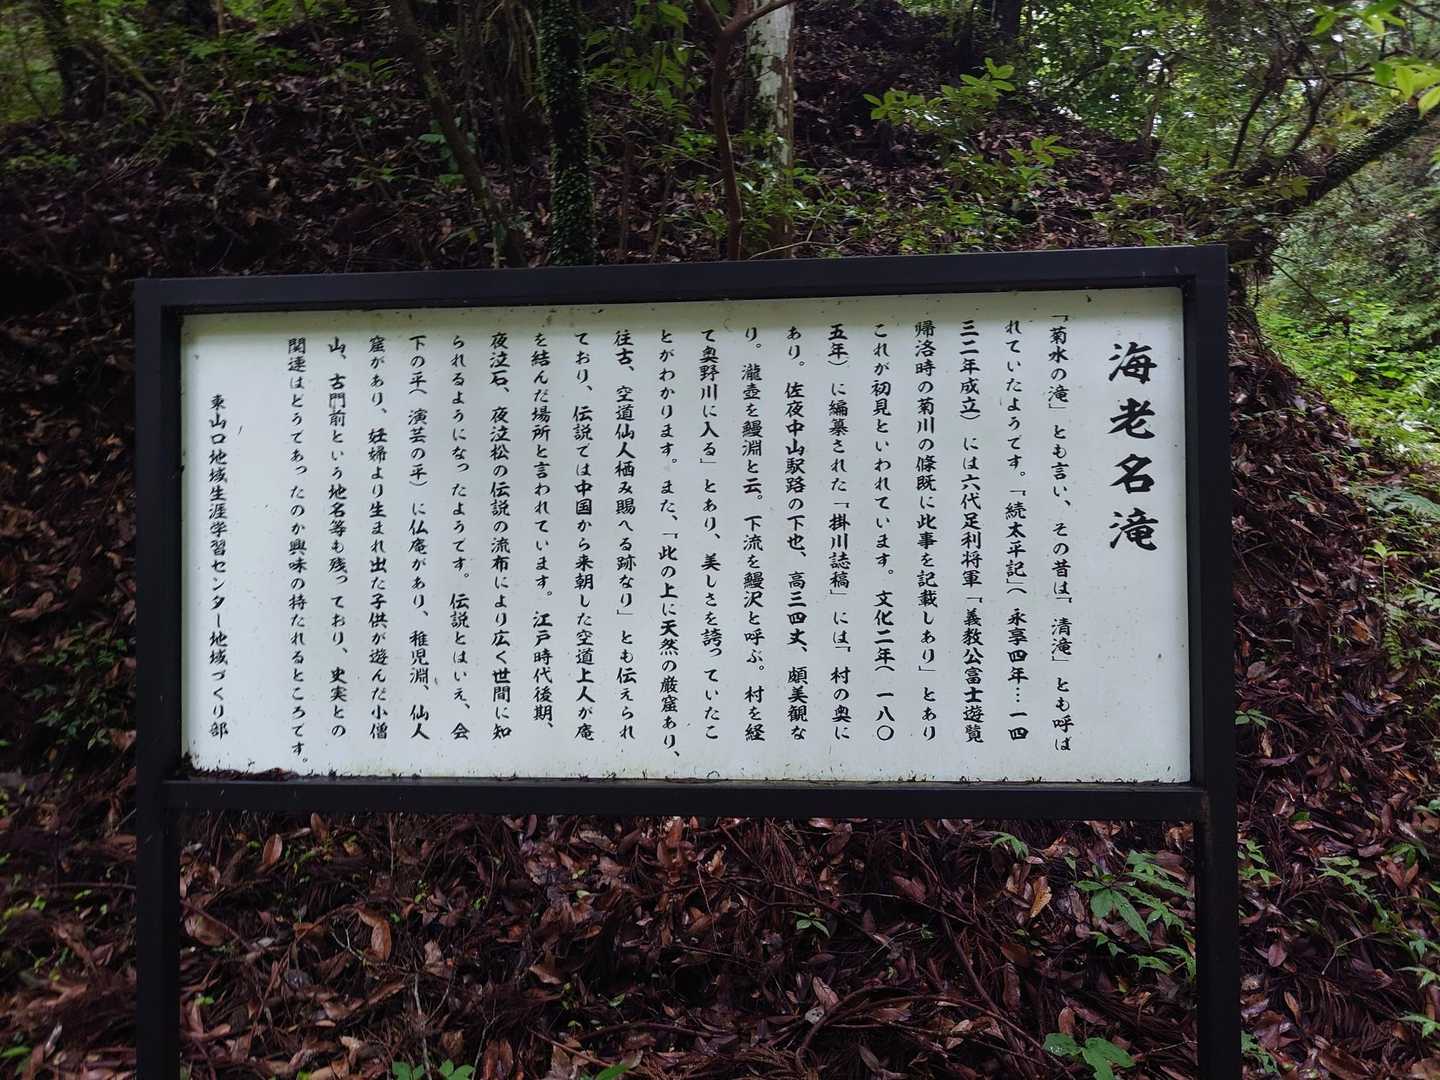 海老名滝
「菊水の滝」とも言い、その昔は「清滝」とも呼ば
れていたようです。「続太平記」（永享四年…一四
三二年成立）には六代足利将軍「義教公富士遊覧
帰洛時の菊川の條既に此事を記載しあり」とあり
これが初見といわれています。文化二年（一八〇
五年）に編纂された「掛川誌稿」には「村の奥に
あり。佐夜中山駅路の下也、高三四丈、頗美観な
り。瀧壺を鰻淵と云。下流を鰻沢と呼ぶ。村を経
て奥野川に入る」とあり、美しさを誇っていたこ
とがわかります。また、「此の上に天然の厳窟あり、
往古、空道仙人栖み賜へる跡なり」とも伝えられ
ており、伝説では中国から来朝した空道上人が庵
を結んだ場所と言われています。江戸時代後期、
夜泣石、夜泣松の伝説の流布により広く世間に知
られるようになったようです。伝説とはいえ、会
下の平（演芸の平）に仏庵があり、稚児淵、仙人
窟があり、妊婦より生まれ出た子供が遊んだ小僧
山、古門前という地名等も残っており、史実との
関連はどうであったのか興味の持たれるところです。
東山口地域生涯学習センター地域づくり部